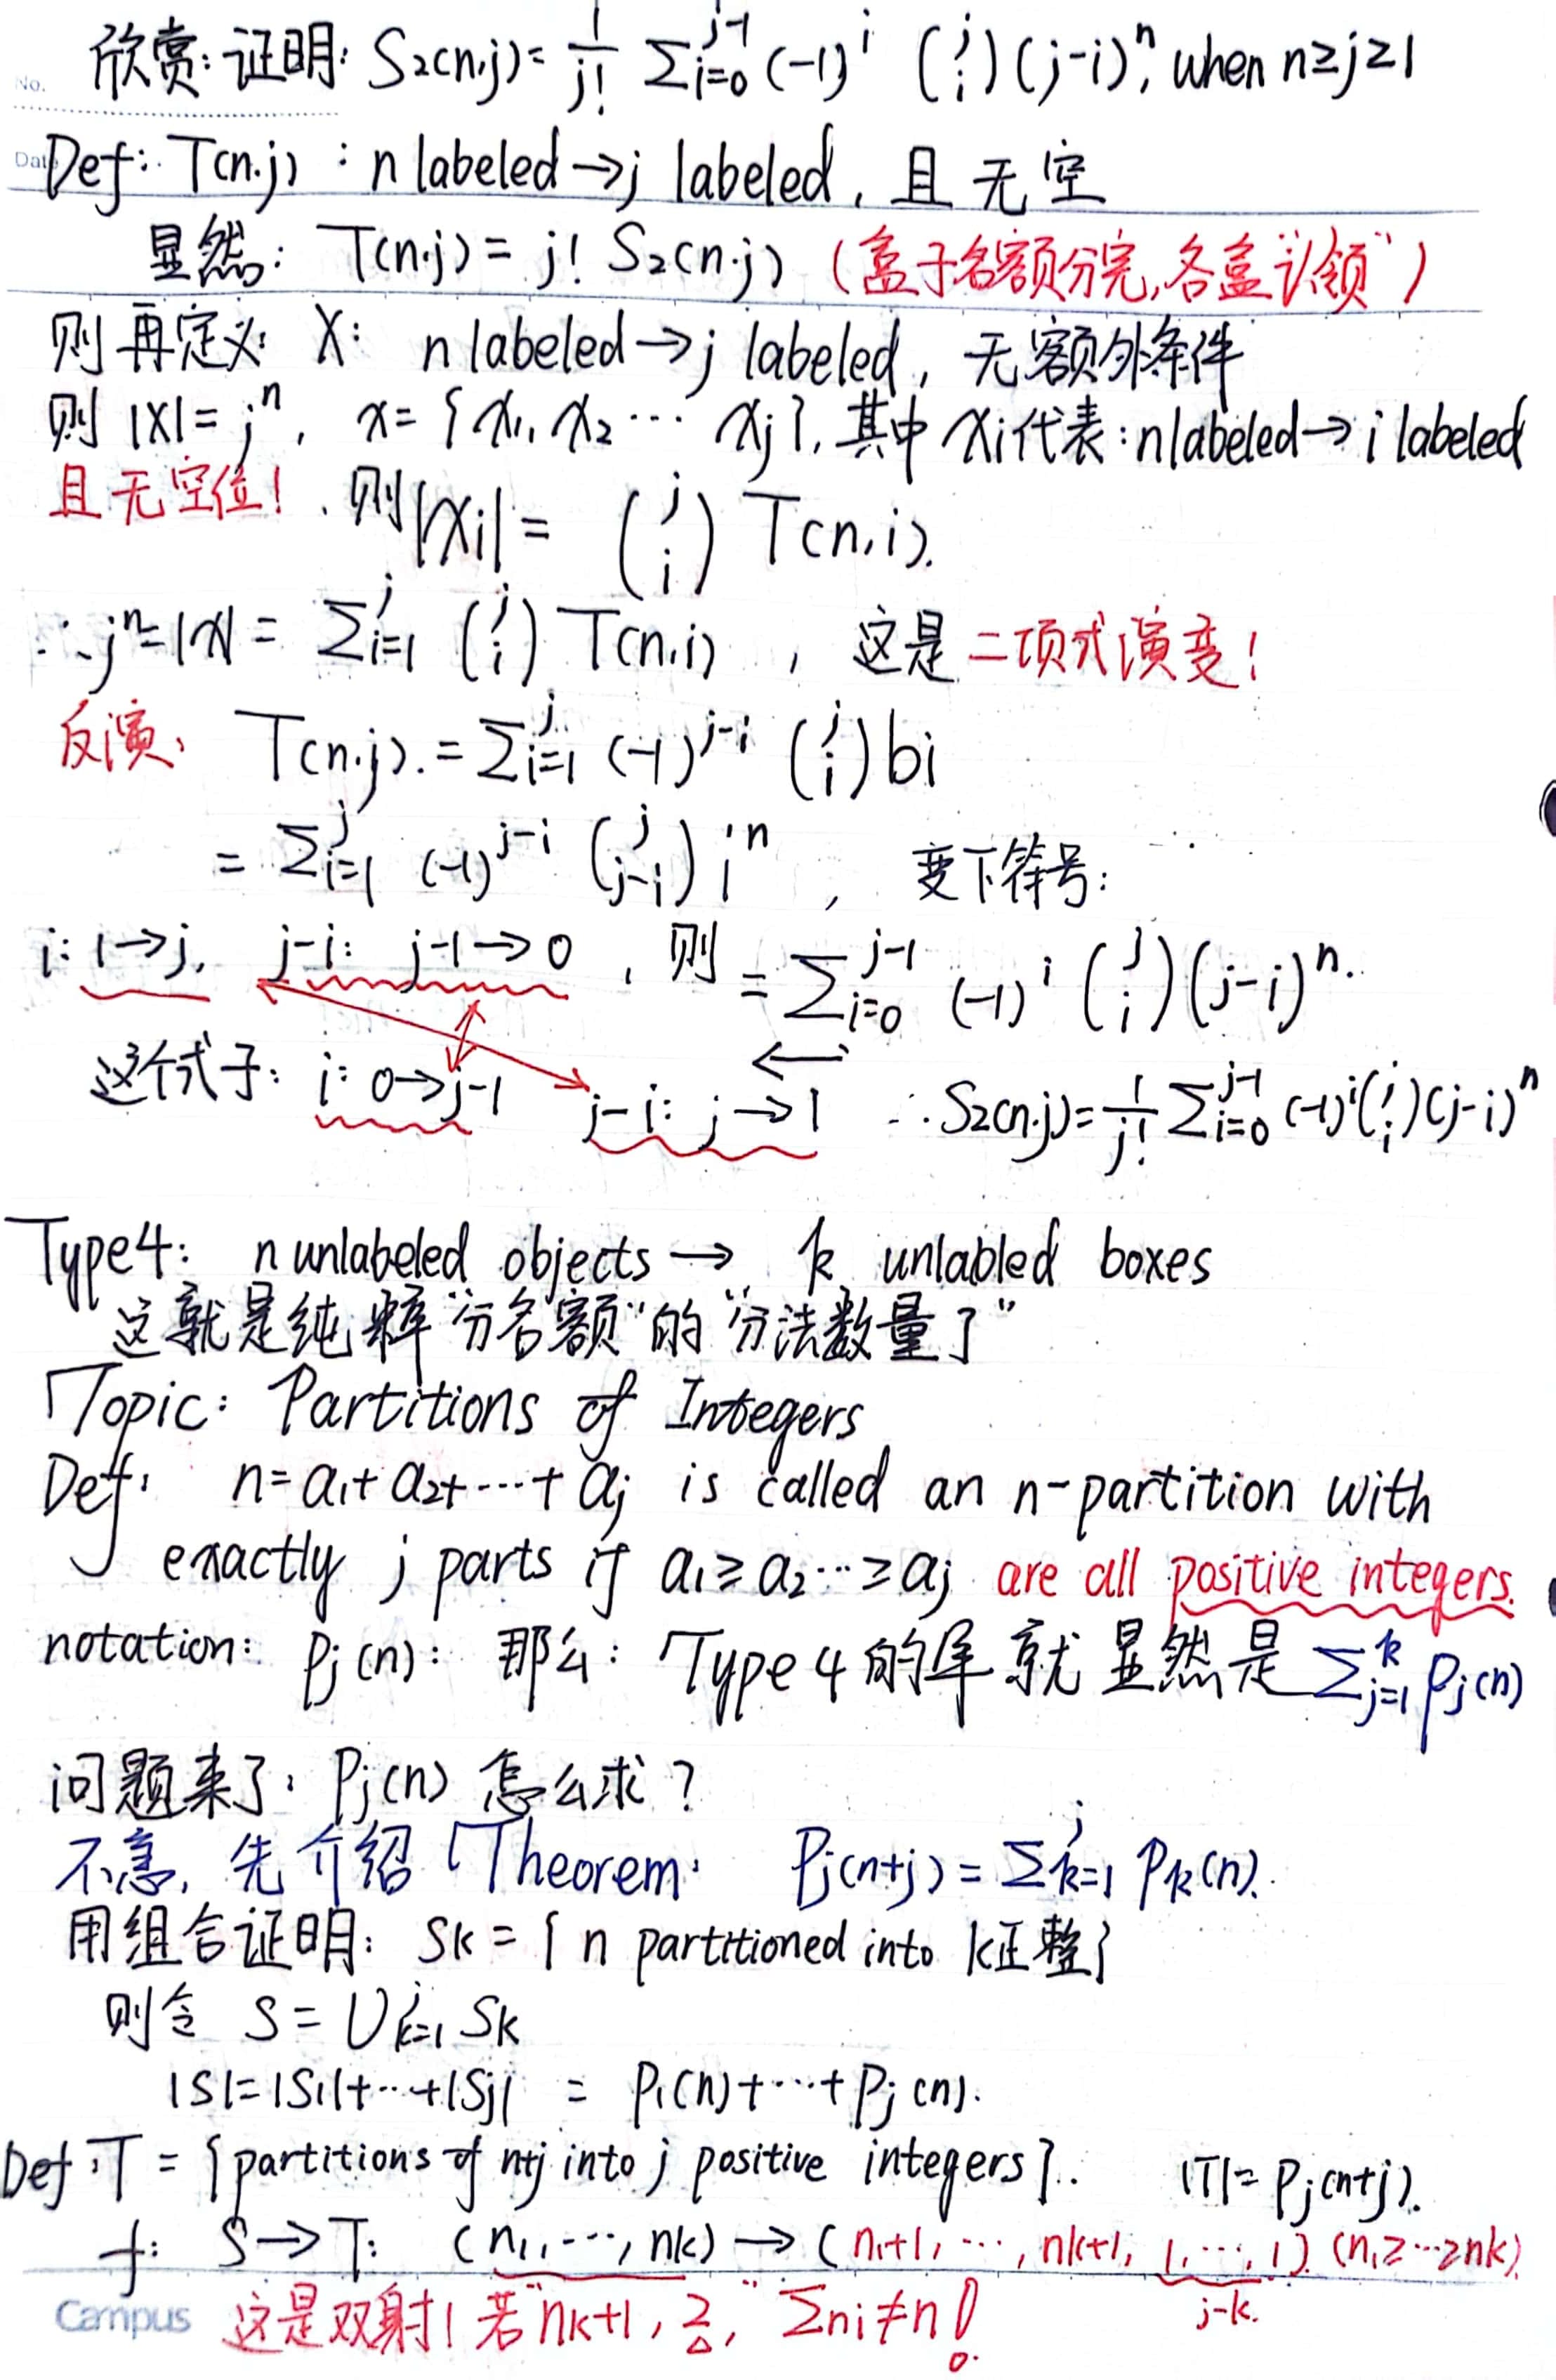 欣赏:证明: S₂(n,j)= 1/j! Σ_{i=0}^{j-1} (-1)^i (j i) (j-i)^n, when n≥j≥1
No.
Date
Def: T(n,j) : n labeled→j labeled, 且 无空
显然: T(n,j) = j! S₂(n,j) (盒子名额分完,各盒“认领”)
则 再定义: X: n labeled→j labeled, 无额外条件
则 |X|= j^n, x= {x₁, x₂ … xj}, 其中 xi代表:n labeled→ i labeled
且无空位! , 则|xi| = (j i) T(n,i).
∴ j^n=|x| = Σ_{i=1}^{j} (j i) T(n,i) , 这是 二项式演变!
反演: T(n,j).= Σ_{i=1}^{j} (-1)^{j-i} (j i) bi
= Σ_{i=1}^{j} (-1)^{j-i} (j j-i) i^n , 变下符号:
i: 1→j, j-i: j-1→0 , 则 = Σ_{i=0}^{j-1} (-1)^i (j i)(j-i)^n.
←
这个式子: i: 0→j-1 j-i: j→1 ∴S₂(n,j)= 1/j! Σ_{i=0}^{j-1} (-1)^i(j i)(j-i)^n
Type4: n unlabeled objects → k unlabled boxes
这就是纯粹“分名额”的“分法数量了”
Topic: Partitions of Integers
Def: n= a₁+ a₂+ ··· + aj is called an n-partition with
exactly j parts if a₁≥a₂···≥aj are all positive integers.
notation: Pj(n): 那么: Type 4 的解 就 显然是 Σ_{j=1}^{k} Pj(n)
问题来了: Pj(n) 怎么求?
不急, 先介绍 Theorem: Pj(n+j) = Σ_{k=1}^{j} Pk(n).
用组合证明: Sk = { n partitioned into k正整}
则令 S = ∪_{k=1}^{j} Sk
|S|=|S₁|+···+|Sj| = P₁(n)+···+Pj(n).
Def:T = {partitions of n+j into j positive integers}. |T|= Pj(n+j).
f: S→T: (n₁,···,nk) → (n₁+1,···,nk+1, 1,···,1) (n₁≥···≥nk)
j-k.
Campus 这是双射! 若“nk+1, 2,” Σni≠n!